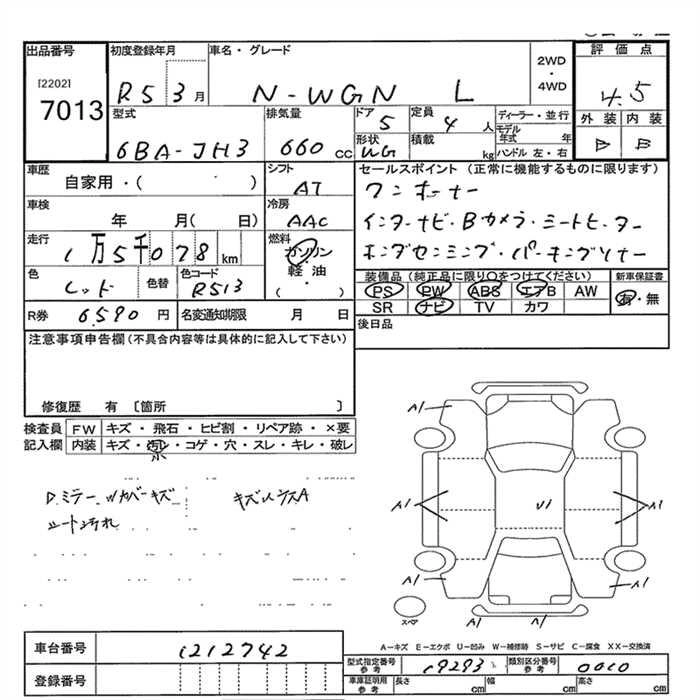 出品番号
[2202]
7013
初度登録年月
R5 3月
車名・グレード
N-WGN L
2WD
・
4WD
評価点
4.5
外装 内装
B B
型式
6BA-JH3
排気量
660 cc
ドア
5
定員
4 人
形状
WG
積載
kg
ディーラー・並行
モデル
年式 年
ハンドル 左・右
車歴
自家用・( )
シフト
AT
車検
年 月( 日)
冷房
AAC
走行
1万5千078 km
燃料
ガソリン
・
軽油
( )
色
レッド
色替
色コード
R513
R券
6,590 円
名変通知期限 月 日
セールスポイント (正常に機能するものに限ります)
ワンオーナー
インターナビ・Bカメラ・シートヒーター
ホンダセンシング・パーキングソナー
装備品(純正品に限り○をつけてください)
PS PW ABS エアB AW
SR ナビ TV カワ
新車保証書
有・無
後日品
注意事項申告欄(不具合内容等は具体的に記入して下さい)
修復歴 有 〔箇所 〕
検査員
記入欄
FW キズ・飛石・ヒビ割・リペア跡・×要
内装 キズ・汚レ・コゲ・穴・スレ・キレ・破レ
小
D.ミラーカバーキズ
シート汚れ
キズ
A1
A1
A1
U1
A1
A1
A1
A1
スペア
A-キズ E-エクボ U-凹み W-補修跡 S-サビ C-腐食 XX-交換済
車台番号
1212742
登録番号
型式指定番号
参考
19293
類別区分番号
参考
0010
車庫証明用
参考
長さ cm
幅 cm
高さ cm